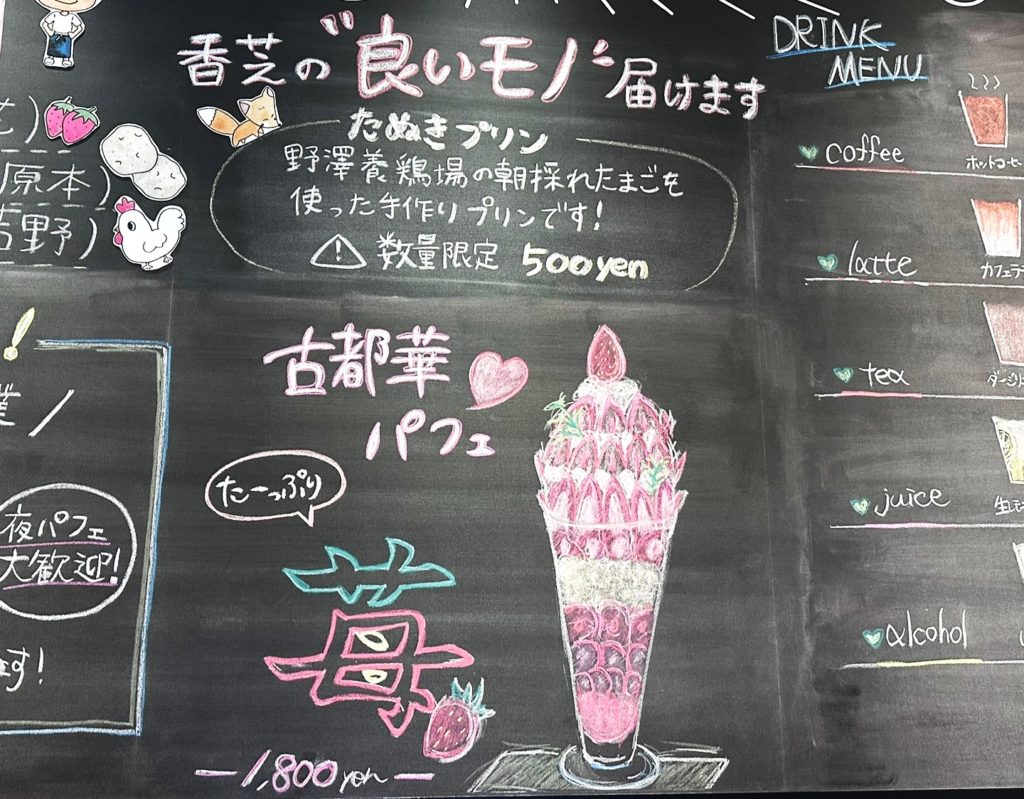 香芝の"良いモノ"届けます
たぬきプリン
野澤養鶏場の朝採れたまごを
使った手作りプリンです!
数量限定 500yen
古都華
パフェ
たーっぷり
苺
1,800yen
原本)
吉野)
夜パフェ
大歓迎!
ます!
DRINK
MENU
coffee
ホットコーヒー
latte
カフェラテ
tea
juice
alcohol